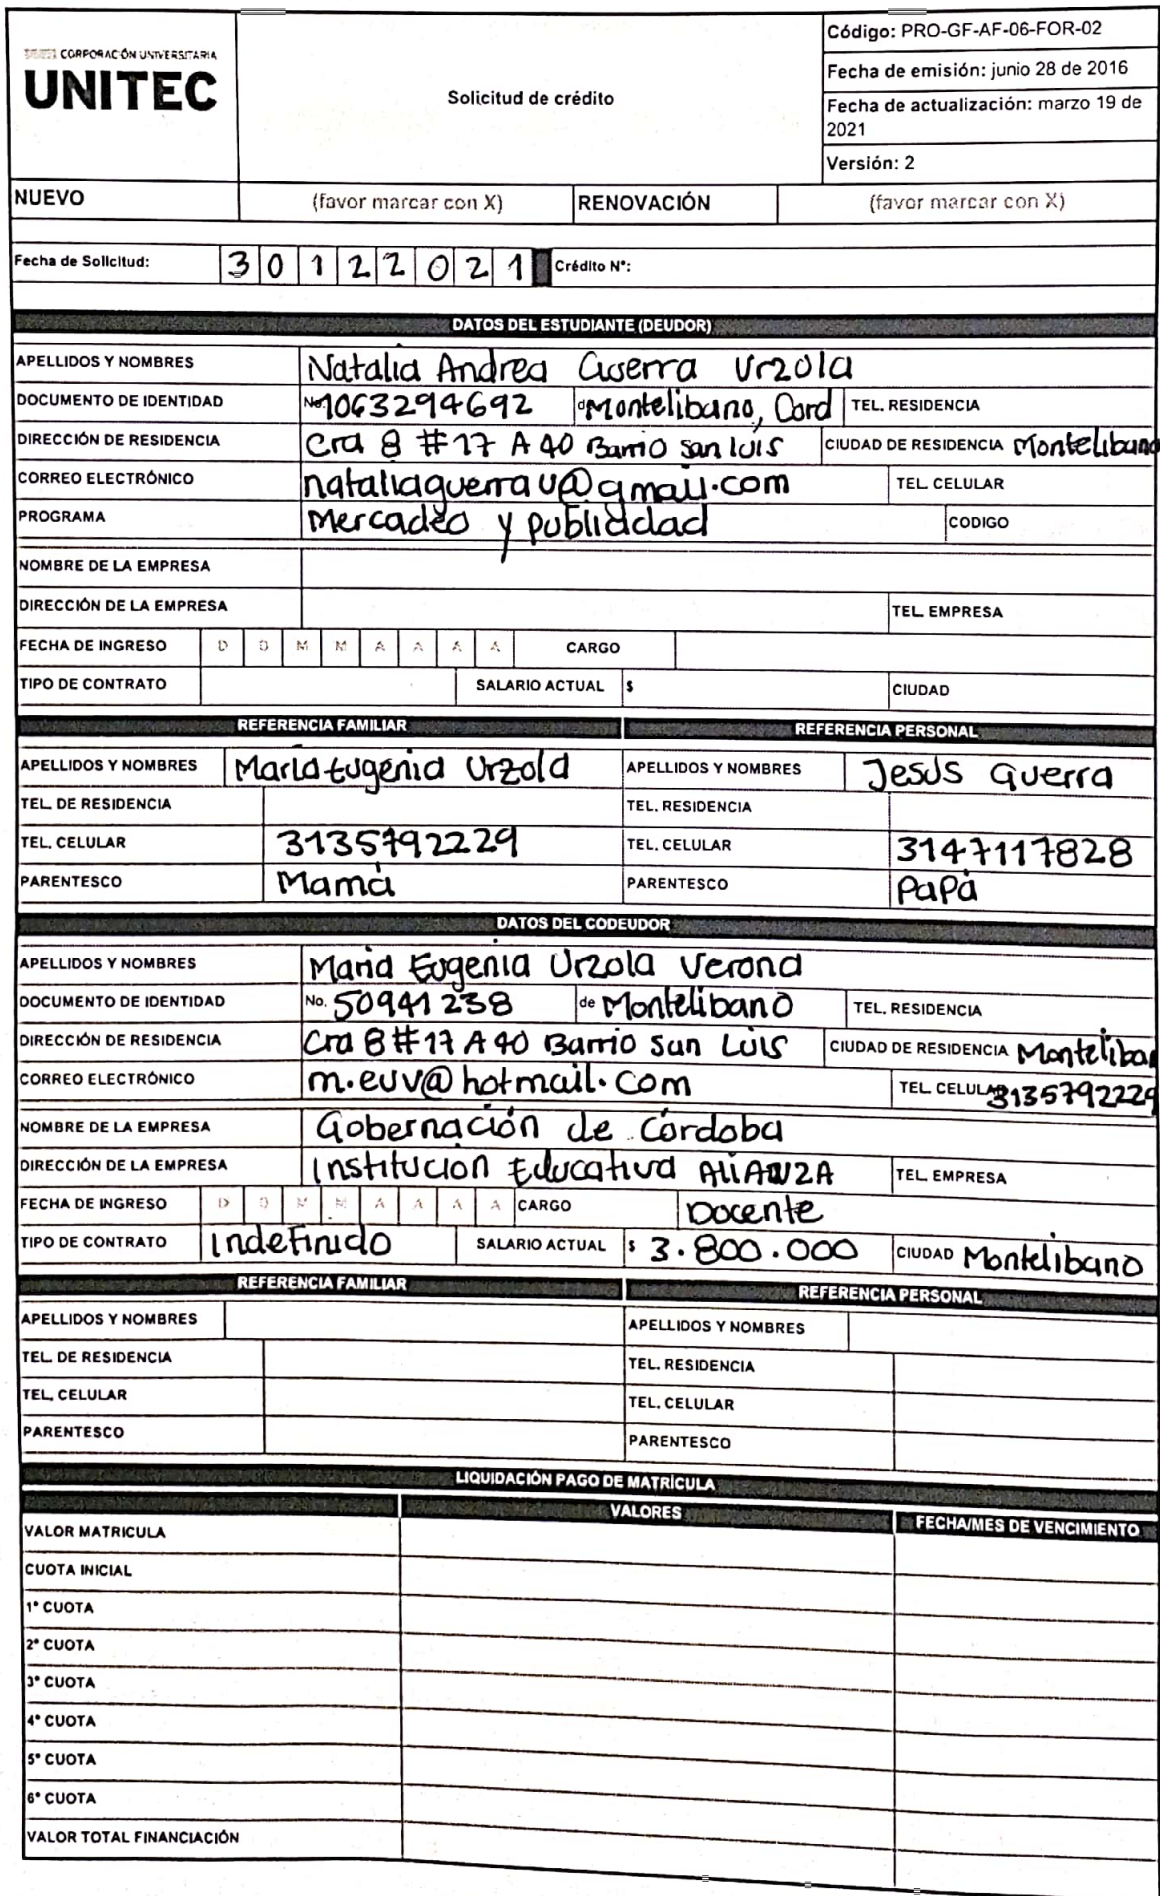 CORPORACIÓN UNIVERSITARIA
UNITEC
Solicitud de crédito
Código: PRO-GF-AF-06-FOR-02
Fecha de emisión: junio 28 de 2016
Fecha de actualización: marzo 19 de
2021
Versión: 2
NUEVO (favor marcar con X) RENOVACIÓN (favor marcar con X)
Fecha de Solicitud: 3 0 1 2 2 0 2 1 Crédito N°:
DATOS DEL ESTUDIANTE (DEUDOR)
APELLIDOS Y NOMBRES Natalia Andrea Guerra Urzola
DOCUMENTO DE IDENTIDAD No. 1063294692 de Montelibano, Cord TEL. RESIDENCIA
DIRECCIÓN DE RESIDENCIA Cra 8 #17 A 40 Barrio san luis CIUDAD DE RESIDENCIA Montelibano
CORREO ELECTRÓNICO nataliaguerrau@gmail.com TEL. CELULAR
PROGRAMA Mercadeo y publicidad CODIGO
NOMBRE DE LA EMPRESA
DIRECCIÓN DE LA EMPRESA TEL. EMPRESA
FECHA DE INGRESO D D M M A A A A CARGO
TIPO DE CONTRATO SALARIO ACTUAL $ CIUDAD
REFERENCIA FAMILIAR REFERENCIA PERSONAL
APELLIDOS Y NOMBRES Maria Eugenia Urzola APELLIDOS Y NOMBRES Jesús Guerra
TEL. DE RESIDENCIA TEL. RESIDENCIA
TEL. CELULAR 3135792229 TEL. CELULAR 3147117828
PARENTESCO Mamá PARENTESCO Papá
DATOS DEL CODEUDOR
APELLIDOS Y NOMBRES Maria Eugenia Urzola Verona
DOCUMENTO DE IDENTIDAD No. 50941238 de Montelibano TEL. RESIDENCIA
DIRECCIÓN DE RESIDENCIA Cra 8 #17 A 40 Barrio San Luis CIUDAD DE RESIDENCIA Monteliba
CORREO ELECTRÓNICO m.euv@hotmail.com TEL. CELULAR 3135792229
NOMBRE DE LA EMPRESA Gobernación de Córdoba
DIRECCIÓN DE LA EMPRESA Institución Educativa AliANZA TEL. EMPRESA
FECHA DE INGRESO D D M M A A A A CARGO Docente
TIPO DE CONTRATO Indefinido SALARIO ACTUAL $ 3.800.000 CIUDAD Montelibano
REFERENCIA FAMILIAR REFERENCIA PERSONAL
APELLIDOS Y NOMBRES APELLIDOS Y NOMBRES
TEL. DE RESIDENCIA TEL. RESIDENCIA
TEL. CELULAR TEL. CELULAR
PARENTESCO PARENTESCO
LIQUIDACIÓN PAGO DE MATRÍCULA
VALORES FECHA/MES DE VENCIMIENTO
VALOR MATRICULA
CUOTA INICIAL
1° CUOTA
2° CUOTA
3° CUOTA
4° CUOTA
5° CUOTA
6° CUOTA
VALOR TOTAL FINANCIACIÓN